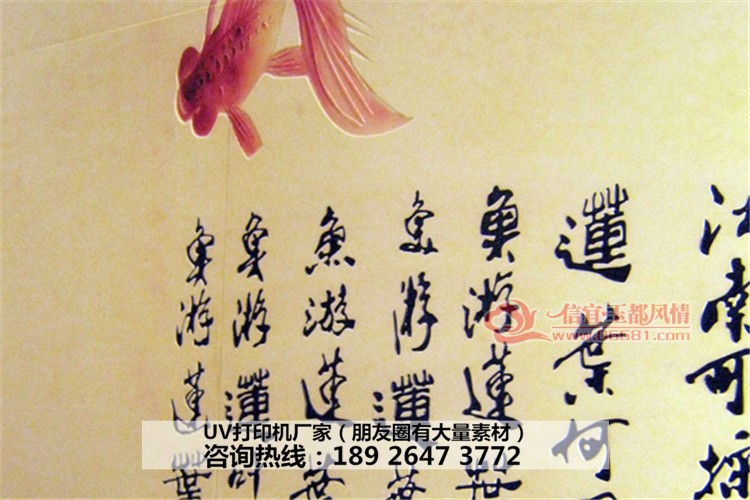 江南可採
蓮葉何
魚游蓮葉
魚游蓮葉
魚游蓮葉
魚游蓮
魚游蓮葉
信宜·玉都风情
www.06681.com
UV打印机厂家（朋友圈有大量素材）
咨询热线：189 2647 3772